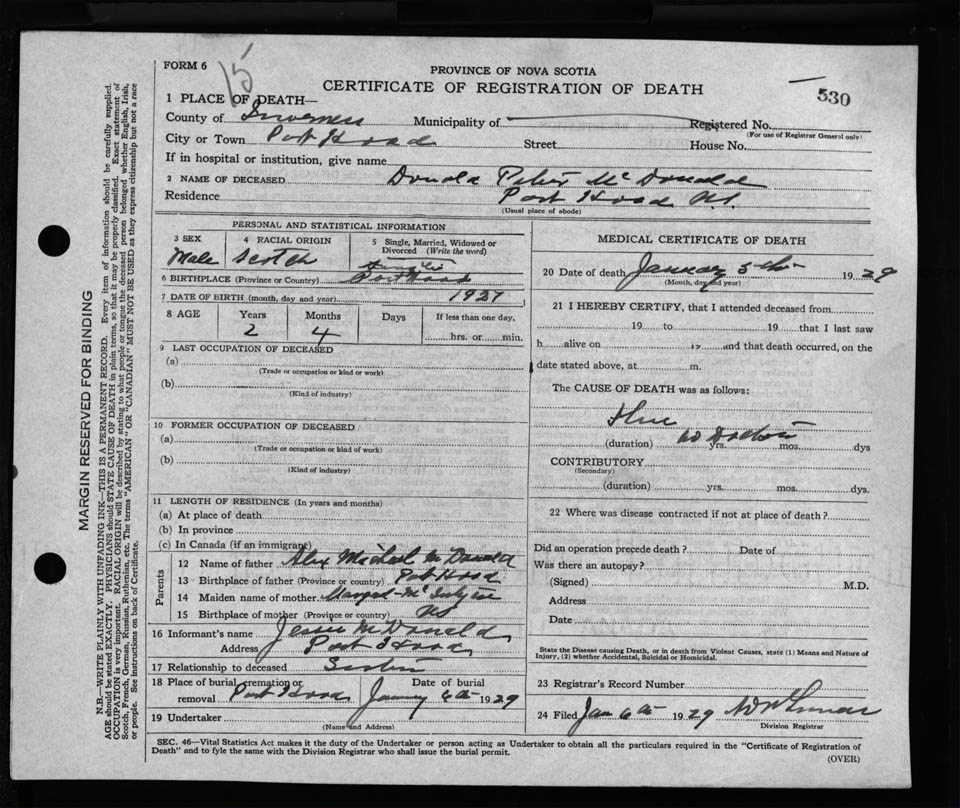 FORM 6
15
PROVINCE OF NOVA SCOTIA
CERTIFICATE OF REGISTRATION OF DEATH
530
1 PLACE OF DEATH—
County of Inverness Municipality of Registered No.
(For use of Registrar General only)
City or Town Port Hood Street House No.
If in hospital or institution, give name
2 NAME OF DECEASED Donald Peter McDonald
Residence Port Hood N.S.
(Usual place of abode)
PERSONAL AND STATISTICAL INFORMATION
3 SEX 4 RACIAL ORIGIN 5 Single, Married, Widowed or Divorced (Write the word)
Male Scotch
6 BIRTHPLACE (Province or Country) Port Hood
7 DATE OF BIRTH (month, day and year) 1927
8 AGE Years Months Days If less than one day,
2 4 hrs. or min.
9 LAST OCCUPATION OF DECEASED
(a)
(Trade or occupation or kind or work)
(b)
(Kind of industry)
10 FORMER OCCUPATION OF DECEASED
(a)
(Trade or occupation or kind of work)
(b)
(Kind of industry)
11 LENGTH OF RESIDENCE (In years and months)
(a) At place of death
(b) In province
(c) In Canada (if an immigrant)
Parents
12 Name of father Alex Michael McDonald
13 Birthplace of father (Province or country) Port Hood
14 Maiden name of mother Margret
15 Birthplace of mother (Province or country) NS
16 Informant's name Jessie McDonald
Address Port Hood
17 Relationship to deceased
18 Place of burial, cremation or removal Port Hood Date of burial January 6th 1929
19 Undertaker
(Name and Address)
MEDICAL CERTIFICATE OF DEATH
20 Date of death January 5th 1929
(Month, day and year)
21 I HEREBY CERTIFY, that I attended deceased from
19 to 19 that I last saw
h alive on 19 and that death occurred, on the
date stated above, at m.
The CAUSE OF DEATH was as follows:
Flue
no Doctor
(duration) yrs. mos. dys
CONTRIBUTORY
(Secondary)
(duration) yrs. mos. dys.
22 Where was disease contracted if not at place of death?
Did an operation precede death? Date of
Was there an autopsy?
(Signed) M.D.
Address
Date
State the Disease causing Death, or in death from Violent Causes, state (1) Means and Nature of
Injury, (2) whether Accidental, Suicidal or Homicidal.
23 Registrar's Record Number
24 Filed Jan 6th 1929
Division Registrar
SEC. 46—Vital Statistics Act makes it the duty of the Undertaker or person acting as Undertaker to obtain all the particulars required in the "Certificate of Registration of
Death" and to fyle the same with the Division Registrar who shall issue the burial permit.
(OVER)
MARGIN RESERVED FOR BINDING
N.B.—WRITE PLAINLY WITH UNFADING INK—THIS IS A PERMANENT RECORD. Every item of information should be carefully supplied.
AGE should be stated EXACTLY. PHYSICIANS should STATE CAUSE OF DEATH in plain terms, so that it may be properly classified. Exact statement of
OCCUPATION is very important. RACIAL ORIGIN will be described by stating to what people or tongue the deceased person belonged whether English, Irish,
Scotch, French, German, Russian, Ruthenian, etc. The terms "AMERICAN" or "CANADIAN" MUST NOT BE USED as they express citizenship but not a race
or people. See instructions on back of Certificate.